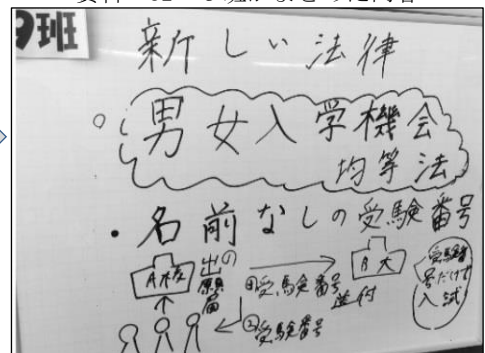 9班
新しい法律
男女入学機会
均等法
・名前なしの受験番号
A校
出願の届
→
B大
①受験番号
送付
②受験番号
受験番
号だけで
入試